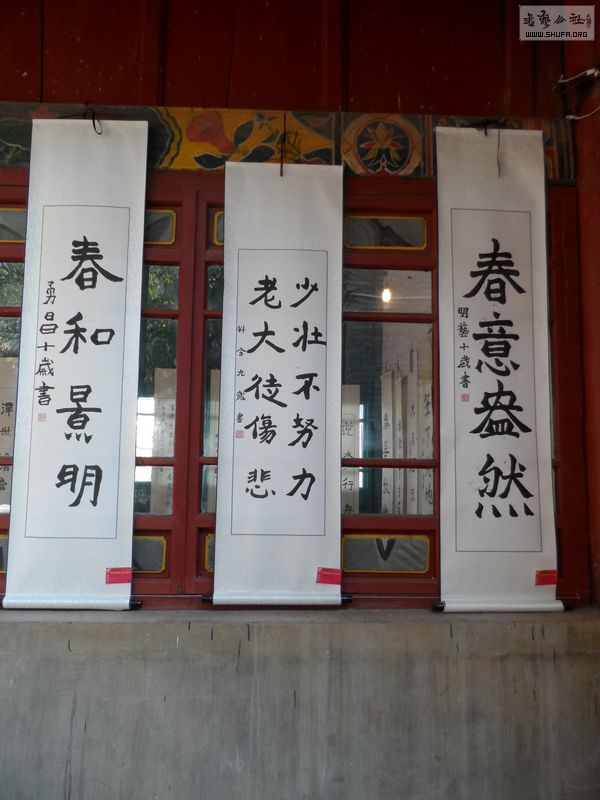 春和景明
勇昌十歲書
少壯不努力
老大徒傷悲
九歲書
春意盎然
明藝十歲書
逆水行舟
書藝公社
WWW.SHUFA.ORG